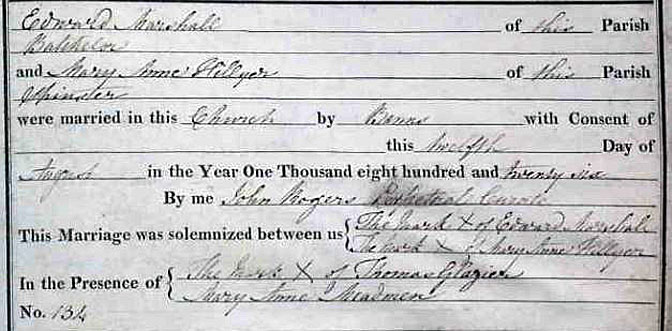 Edward Marshall of this Parish
Batchelor
and Mary Anne Hillyer of this Parish
Spinster
were married in this Church by Banns with Consent of
this twelfth Day of
August in the Year One Thousand eight hundred and twenty six
By me John Rogers Perpetual Curate
This Marriage was solemnized between us { The Mark X of Edward Marshall
The Mark X of Mary Anne Hillyer
In the Presence of { The Mark X of Thomas Glazier
Mary Anne
No. 134